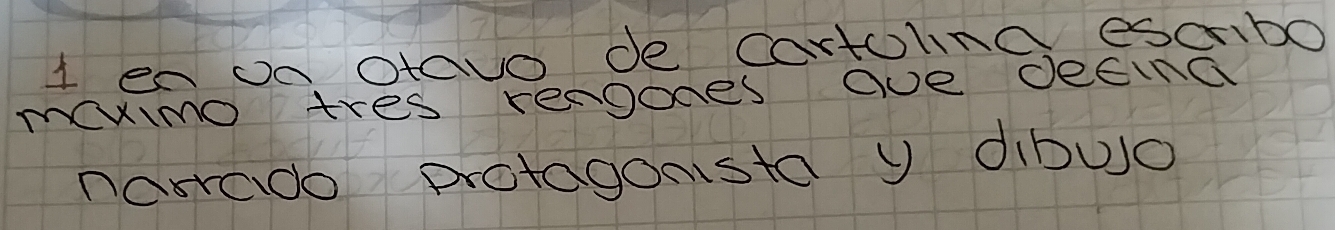 1 en un otavo de cartulina escribo
maximo tres rengones que decina
narrado protagonista y dibujo